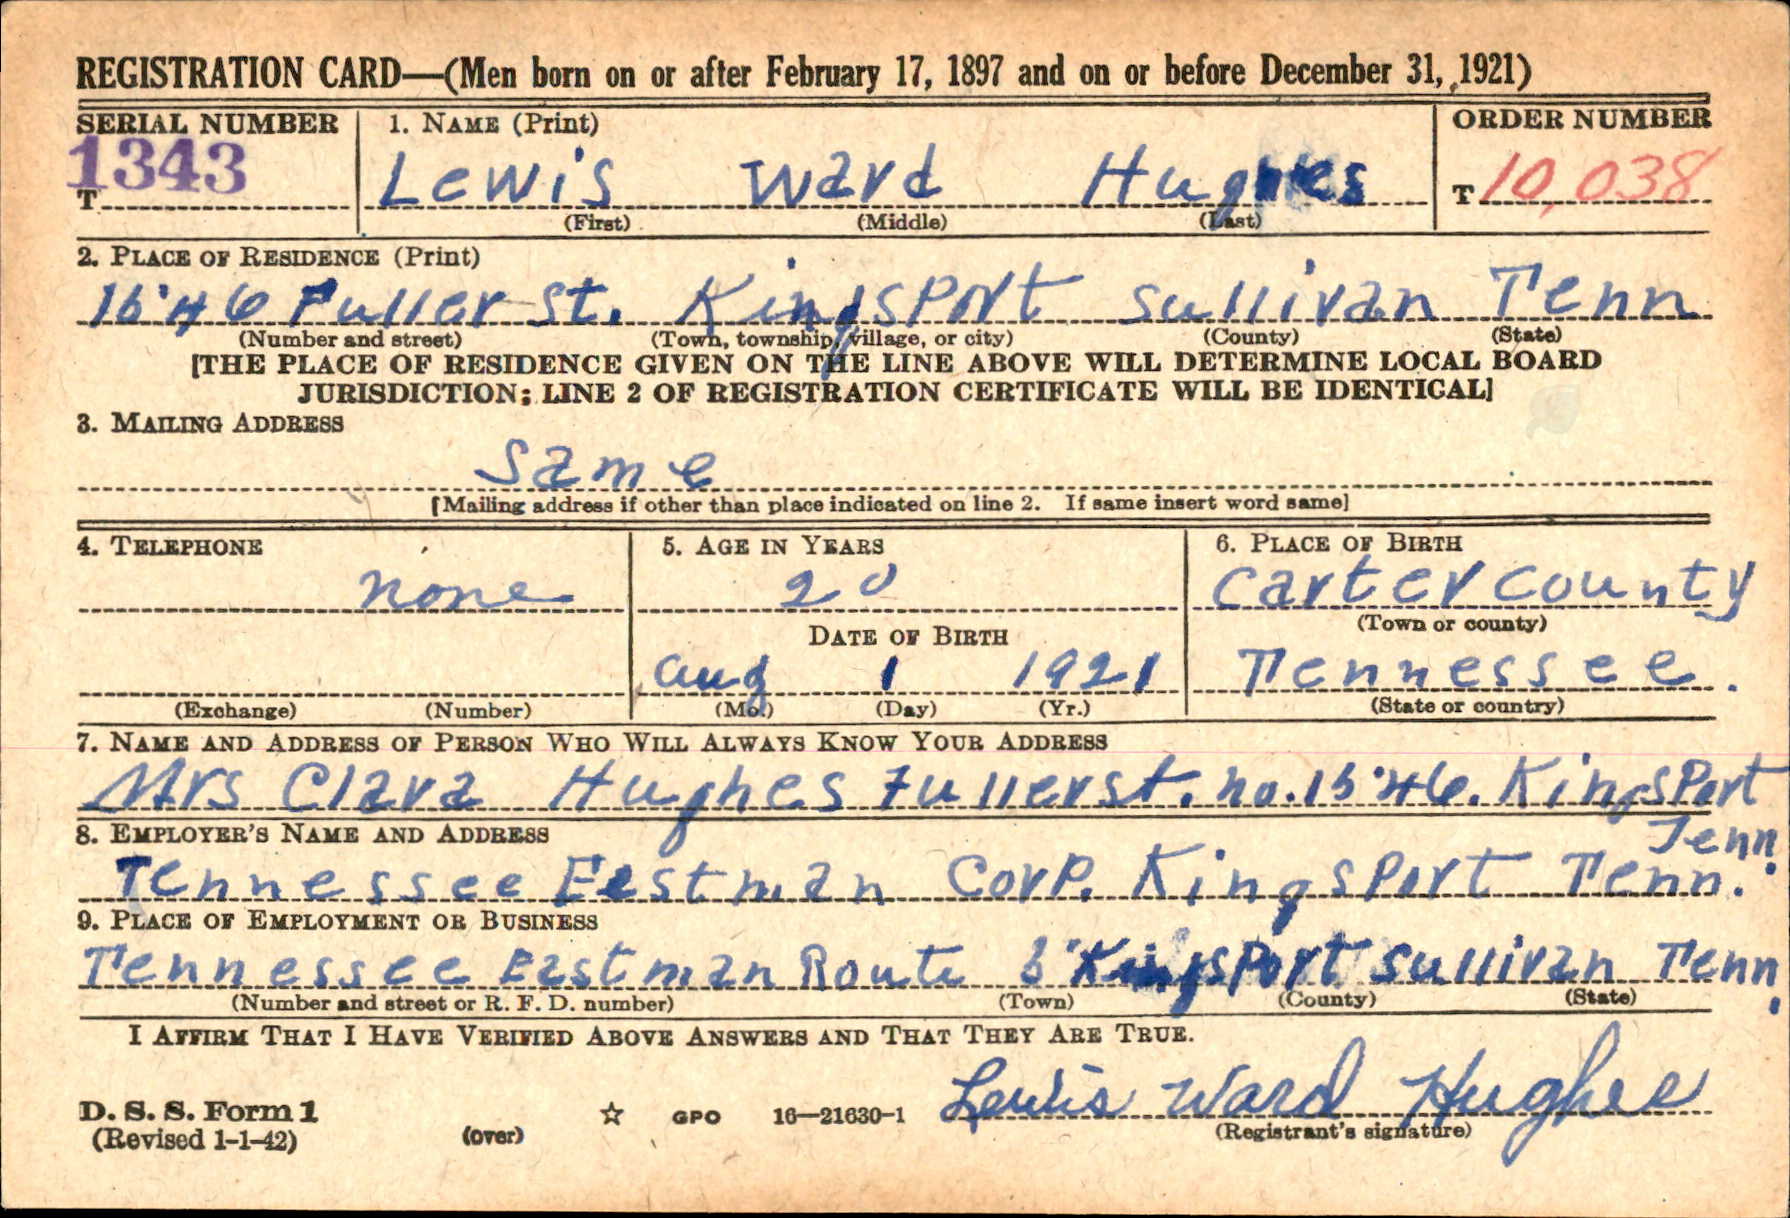 REGISTRATION CARD—(Men born on or after February 17, 1897 and on or before December 31, 1921)
SERIAL NUMBER 1. NAME (Print) ORDER NUMBER
T 1343 Lewis Ward Hughes T 10,038
(First) (Middle) (Last)
2. PLACE OF RESIDENCE (Print)
Fuller St. Kingsport Sullivan Tenn
(Number and street) (Town, township, village, or city) (County) (State)
[THE PLACE OF RESIDENCE GIVEN ON THE LINE ABOVE WILL DETERMINE LOCAL BOARD
JURISDICTION; LINE 2 OF REGISTRATION CERTIFICATE WILL BE IDENTICAL]
3. MAILING ADDRESS
Same
[Mailing address if other than place indicated on line 2. If same insert word same]
4. TELEPHONE 5. AGE IN YEARS 6. PLACE OF BIRTH
none 20 Carter County
DATE OF BIRTH (Town or county)
Aug 1 1921 Tennessee.
(Exchange) (Number) (Mo.) (Day) (Yr.) (State or country)
7. NAME AND ADDRESS OF PERSON WHO WILL ALWAYS KNOW YOUR ADDRESS
Mrs Clara Hughes Fuller st. no. Kingsport
Tenn
8. EMPLOYER'S NAME AND ADDRESS
Tennessee Eastman Corp. Kingsport Tenn.
9. PLACE OF EMPLOYMENT OR BUSINESS
Tennessee Eastman Route Kingsport Sullivan Tenn.
(Number and street or R. F. D. number) (Town) (County) (State)
I AFFIRM THAT I HAVE VERIFIED ABOVE ANSWERS AND THAT THEY ARE TRUE.
Lewis Ward Hughes
D. S. S. Form 1 GPO 16—21630-1
(Revised 1-1-42) (over) (Registrant's signature)